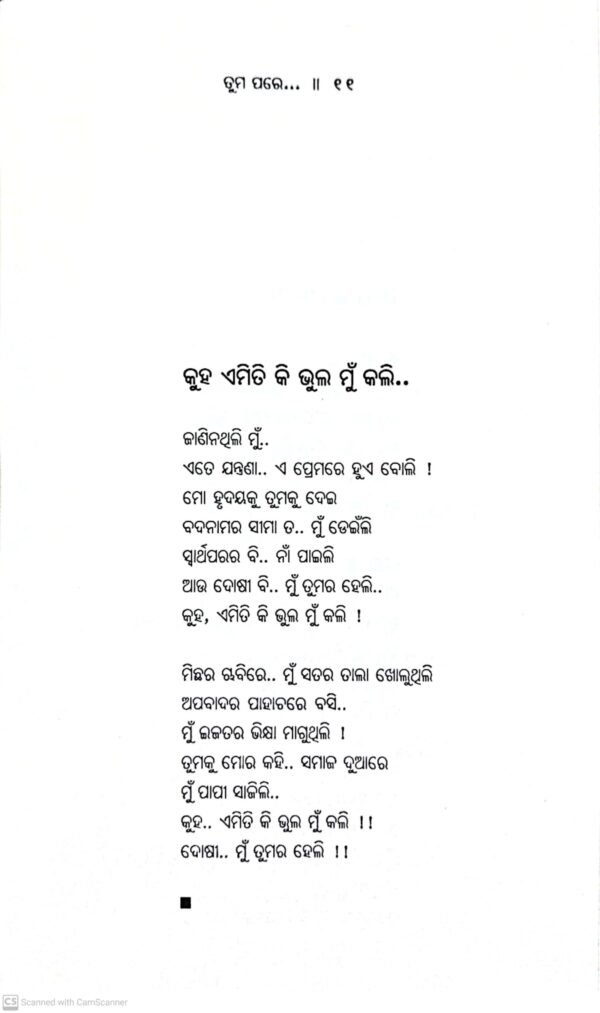 ତୁମ ପରେ... ॥ ୧୧
କୁହ ଏମିତି କି ଭୁଲ ମୁଁ କଲି..
ଜାଣିନଥିଲି ମୁଁ..
ଏତେ ଯନ୍ତଣା.. ଏ ପ୍ରେମରେ ହୁଏ ବୋଲି !
ମୋ ହୃଦୟକୁ ତୁମକୁ ଦେଇ
ବଦନାମର ସୀମା ତ.. ମୁଁ ଡେଇଁଲି
ସ୍ୱାର୍ଥପରର ବି.. ନାଁ ପାଇଲି
ଆଉ ଦୋଷୀ ବି.. ମୁଁ ତୁମର ହେଲି..
କୁହ, ଏମିତି କି ଭୁଲ ମୁଁ କଲି !
ମିଛର ଋବିରେ.. ମୁଁ ସତର ତାଲା ଖୋଲୁଥିଲି
ଅପବାଦର ପାହାଚରେ ବସି..
ମୁଁ ଇଜତର ଭିକ୍ଷା ମାଗୁଥିଲି !
ତୁମକୁ ମୋର କହି.. ସମାଜ ଦୁଆରେ
ମୁଁ ପାପୀ ସାଜିଲି..
କୁହ.. ଏମିତି କି ଭୁଲ ମୁଁ କଲି !!
ଦୋଷୀ.. ମୁଁ ତୁମର ହେଲି !!
CS Scanned with CamScanner